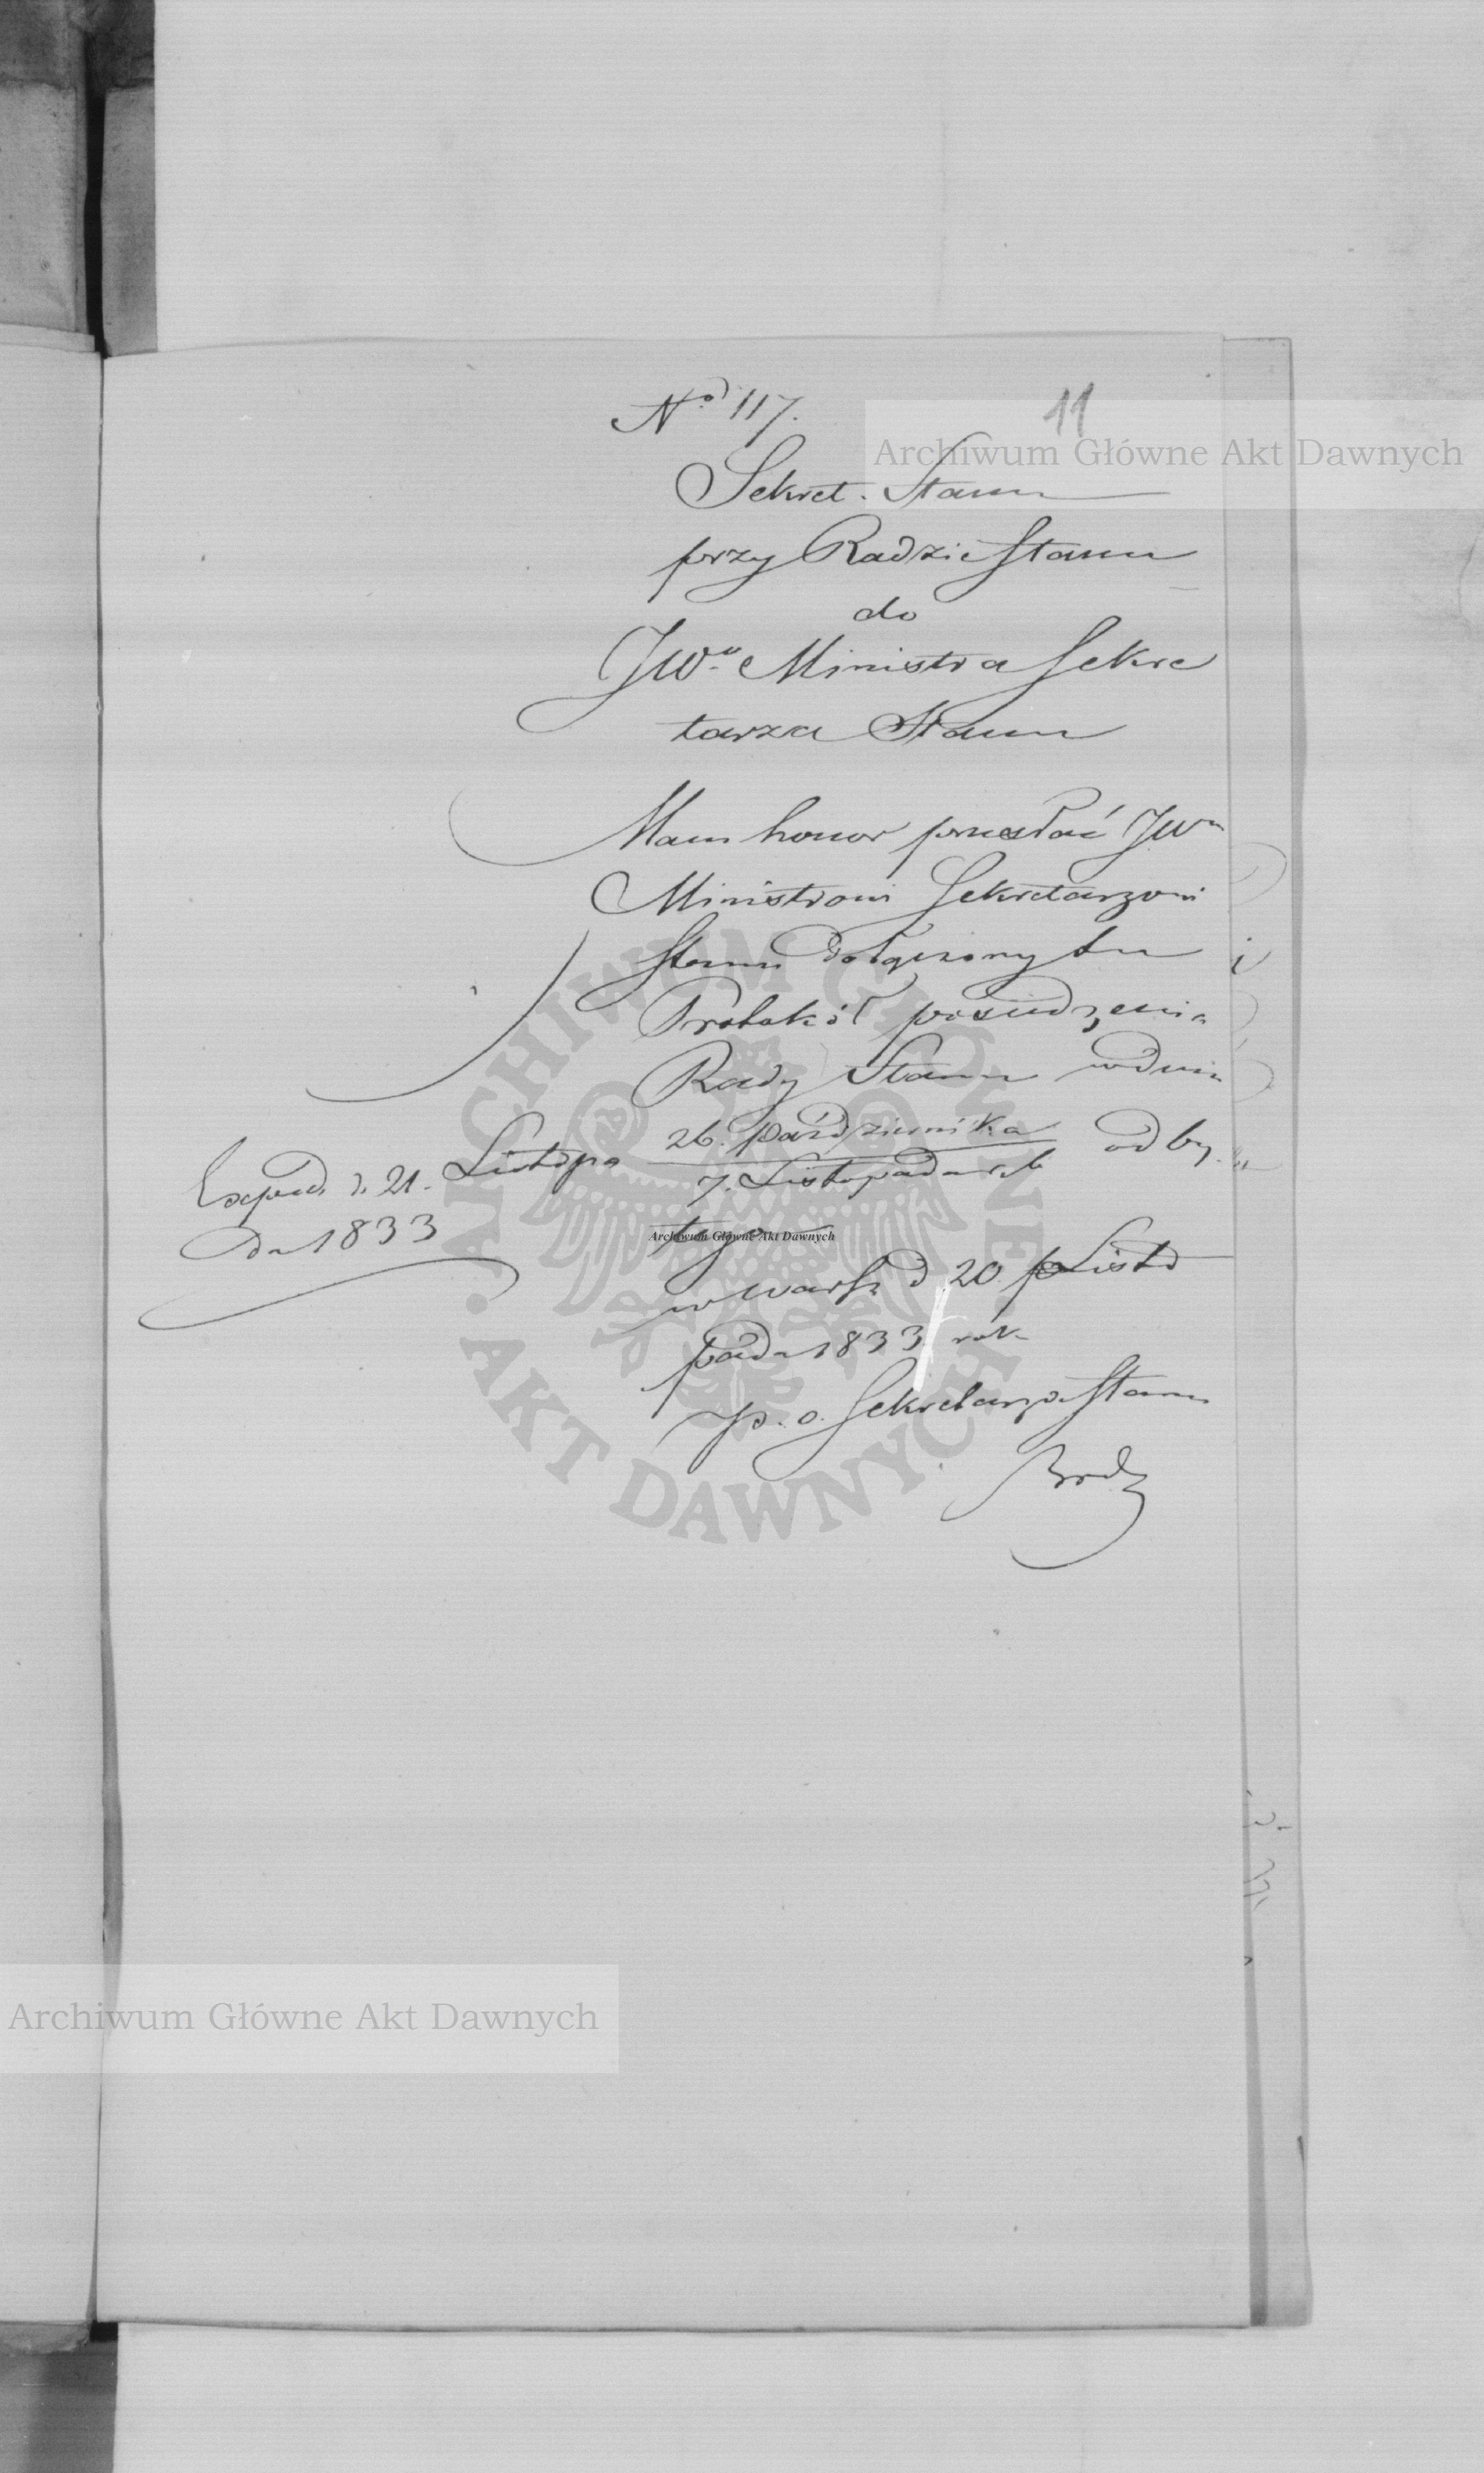 No 117.
11
Archiwum Główne Akt Dawnych
Sekret. Stanu
przy Radzie Stanu
do
JWo Ministra Sekre
tarza Stanu
Mam honor przesłać JWu
Ministrowi Sekretarzowi
Stanu dołączony tu
Protokół posiedzenia
Rady Stanu w dniu
26. Października
7. Listopada r. b. odby
tego
Archiwum Główne Akt Dawnych
w Warsz d. 20 Listo
pada 1833 rok
p. o. Sekretarza Stanu
Exped. d. 21. Listopa
da 1833
ARCHIWUM GŁÓWNE AKT DAWNYCH
Archiwum Główne Akt Dawnych